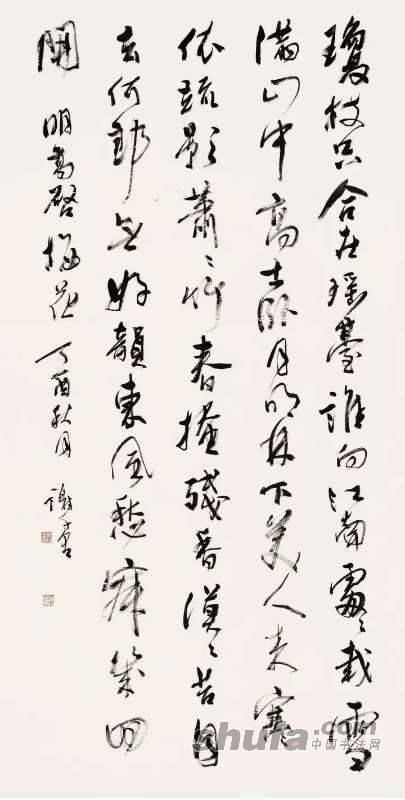 瓊枝只合在瑤臺誰向江南處々栽雪
滿山中高士臥月明林下美人來寒
依疏影蕭々竹春掩殘香漠々苔自
去何郎無好韻東風愁寂幾回
開 明高啓梅花 丁酉秋月 謝
shufa.com 中国书法网